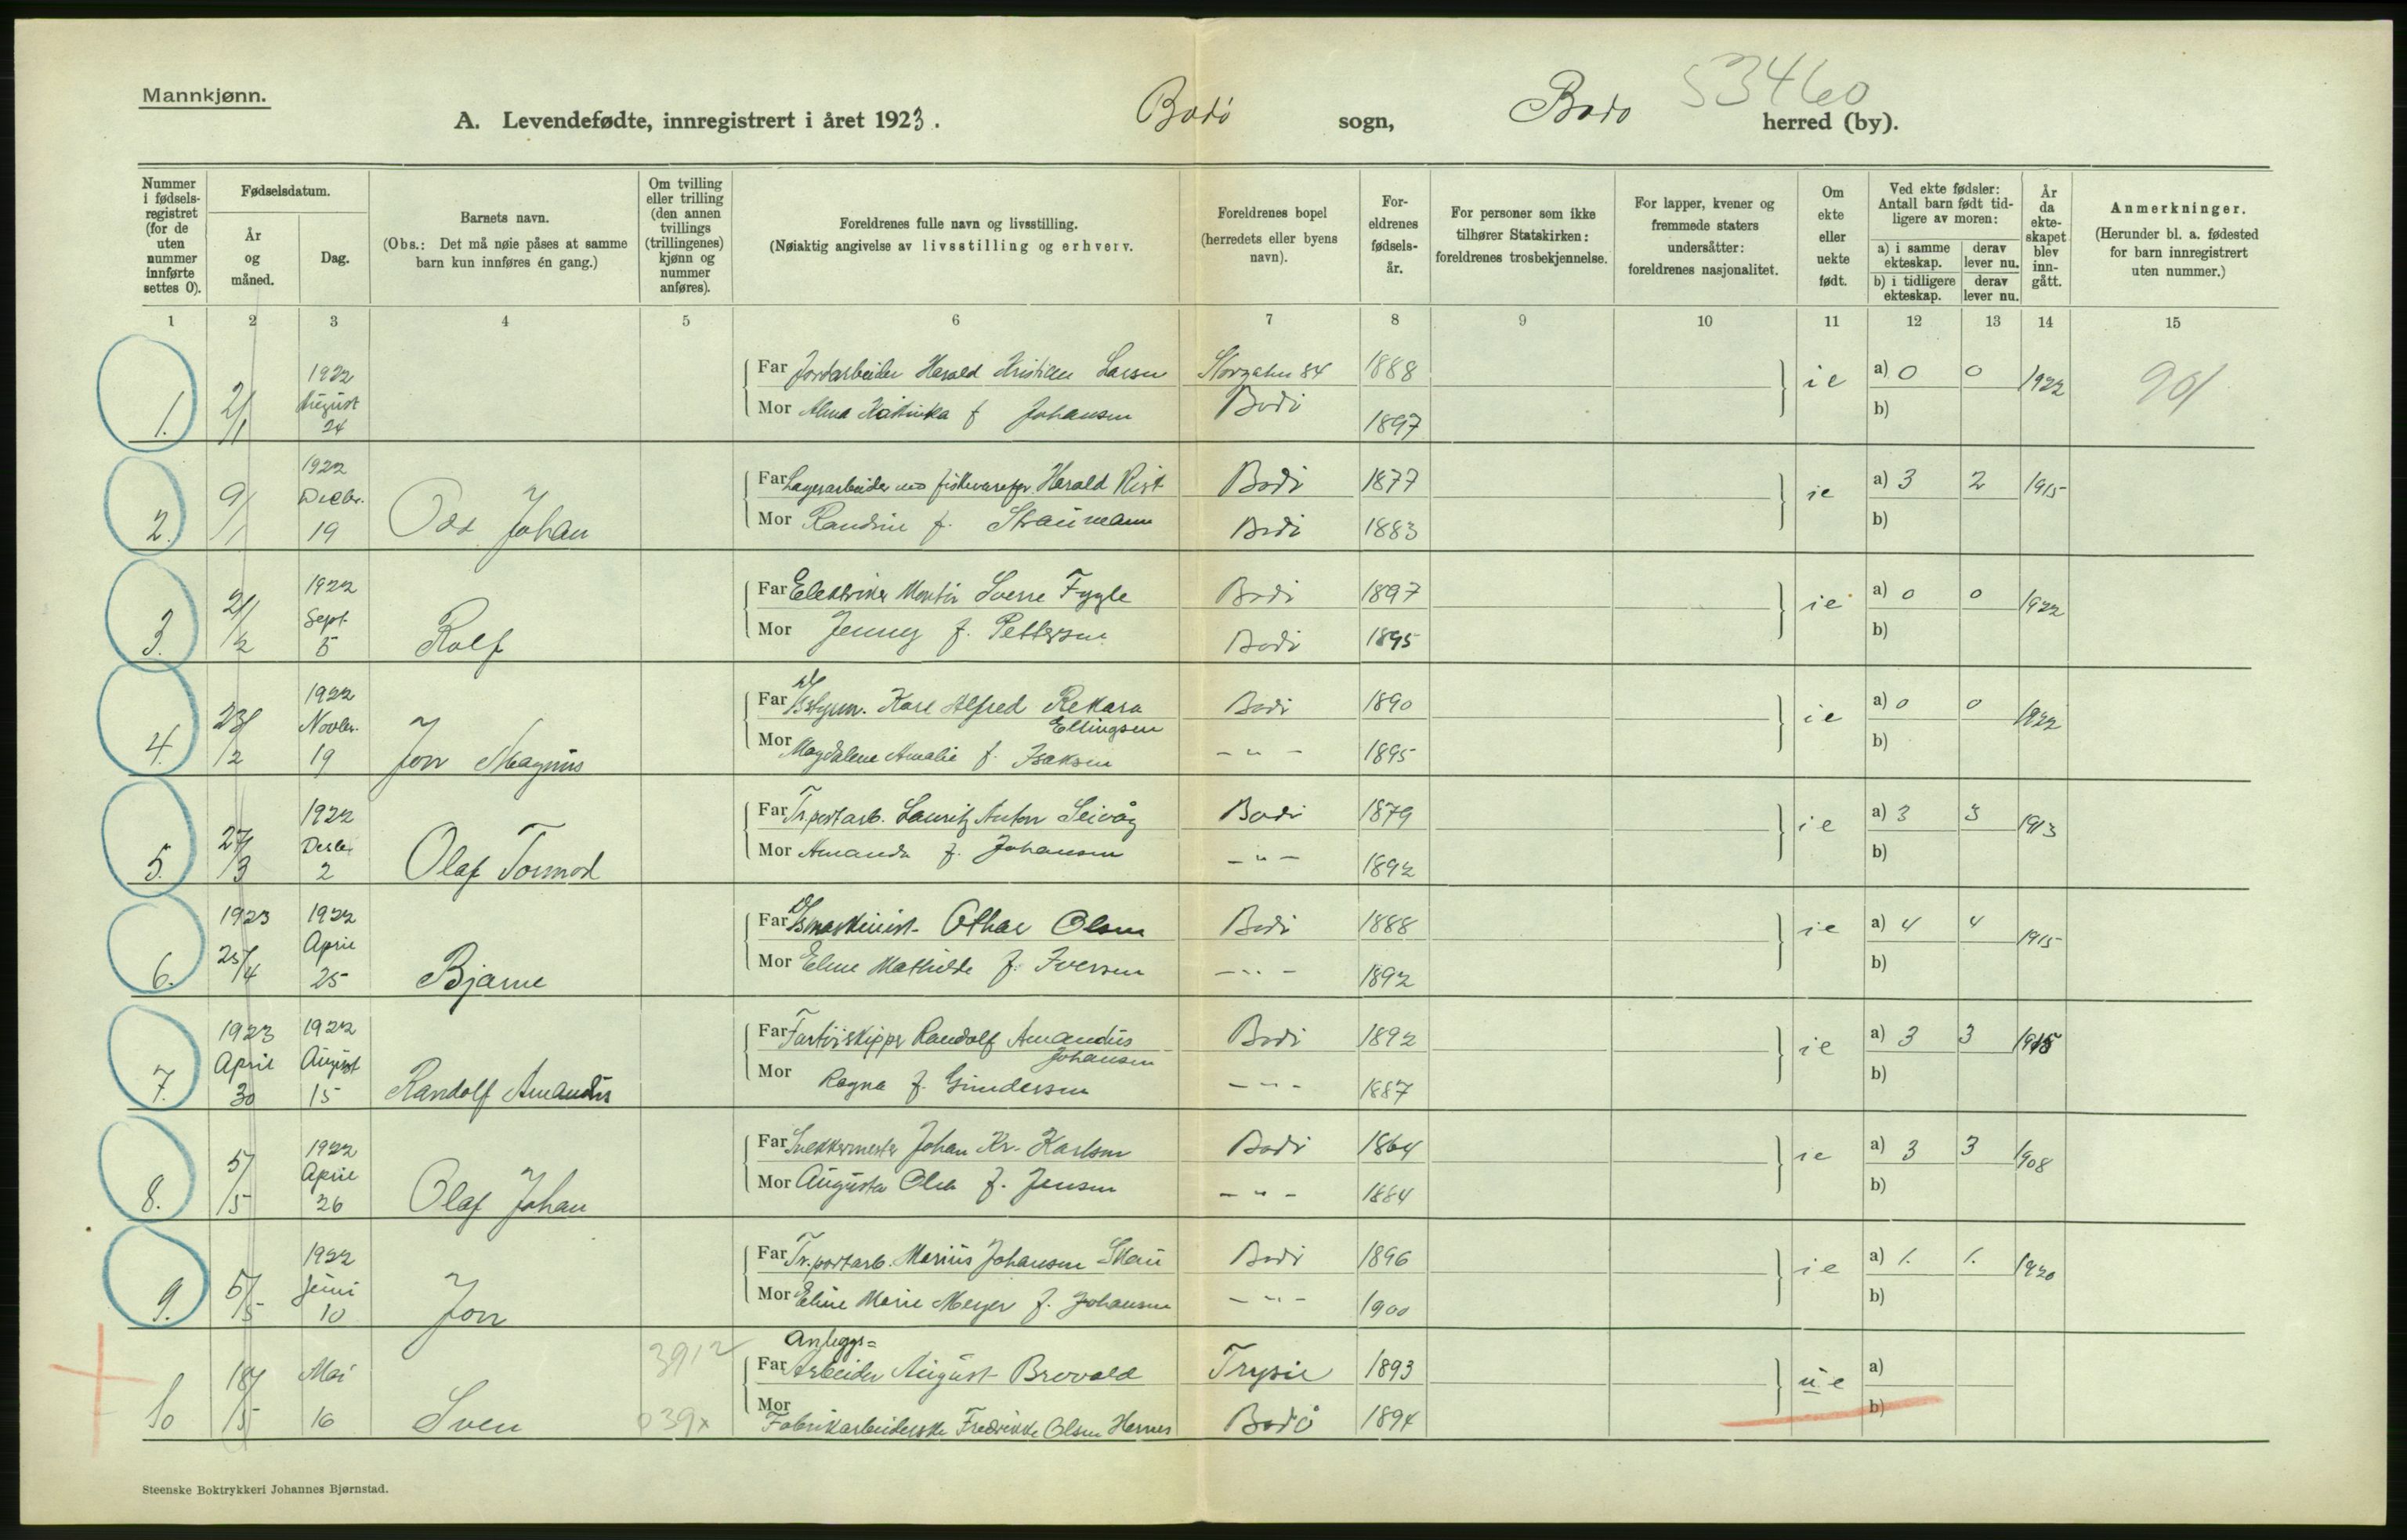 Mannkjønn.
53460
A. Levendefødte, innregistrert i året 1923. Bodø sogn, Bodø herred (by).
Nummer i fødsels-registret (for de uten nummer innførte settes 0).
Fødselsdatum.
År og måned.
Dag.
Barnets navn.
(Obs.: Det må nøie påses at samme barn kun innføres én gang.)
Om tvilling eller trilling (den annen tvillings (trillingenes) kjønn og nummer anføres).
Foreldrenes fulle navn og livsstilling.
(Nøiaktig angivelse av livsstilling og erhverv.
Foreldrenes bopel (herredets eller byens navn).
For-eldrenes fødsels-år.
For personer som ikke tilhører Statskirken: foreldrenes trosbekjennelse.
For lapper, kvener og fremmede staters undersåtter: foreldrenes nasjonalitet.
Om ekte eller uekte født.
Ved ekte fødsler: Antall barn født tid-ligere av moren:
a) i samme ekteskap.
derav lever nu.
b) i tidligere ekteskap.
derav lever nu.
År da ekte-skapet blev inn-gått.
Anmerkninger.
(Herunder bl. a. fødested for barn innregistrert uten nummer.)
1 2 3 4 5 6 7 8 9 10 11 12 13 14 15
1. 2/1 1922 August 24
Far Jordarbeider Harald Kristian Larsen Storgaten 84 1888 ie a) 0 0 1922
Mor Alma Katinka f Johansen Bodø 1897 b)
2. 9/1 1922 Decbr. 19 Odd Johan
Far Lagerarbeider Harald Rist Bodø 1877 ie a) 3 2 1915
Mor Randine f. Straumann Bodø 1883 b)
3. 21/2 1922 Sept. 5 Rolf
Far Elektriker Montør Sverre Fygle Bodø 1897 ie a) 0 0 1922
Mor Jenny f. Pettersen Bodø 1895 b)
4. 23/2 1922 Novbr. 19 Jon Magnus
Far Karl Alfred Rekara Ellingsen Bodø 1890 ie a) 0 0 1922
Mor Magdalene Amalie f. Isaksen - " - 1895 b)
5. 27/3 1922 Desbr. 2 Olaf Tormod
Far Tr.portarb. Lauritz Anton Seivåg Bodø 1879 ie a) 3 3 1913
Mor Amanda f. Johansen - " - 1892 b)
6. 1923 25/4 1922 April 25 Bjarne
Far D/Smaskinist Othar Olsen Bodø 1888 ie a) 4 4 1915
Mor Eline Mathilde f. Iversen - " - 1892 b)
7. 1923 April 30 1922 August 15 Randolf Amandus
Far Fartøiskipper Randolf Amandus Johansen Bodø 1892 ie a) 3 3 1915
Mor Ragna f. Gundersen - " - 1887 b)
8. 5/5 1922 April 26 Olaf Johan
Far Snekkermester Johan Kr. Karlsen Bodø 1864 ie a) 3 3 1908
Mor Augusta Olea f. Jensen - " - 1884 b)
9. 5/5 1922 Juni 10 Jon
Far Tr.portarb. Marius Johansen Skau Bodø 1896 ie a) 1. 1. 1920
Mor Eline Marie Meyer f. Johansen - " - 1900 b)
10 18/5 Mai 16 Sven 3912 039x
Far Anleggs= Arbeider August Brovold Trysil 1893 ue a)
Mor Fabrikarbeiderske Fredrikke Olsen Hernes Bodø 1894 b)
Steenske Boktrykkeri Johannes Bjørnstad.